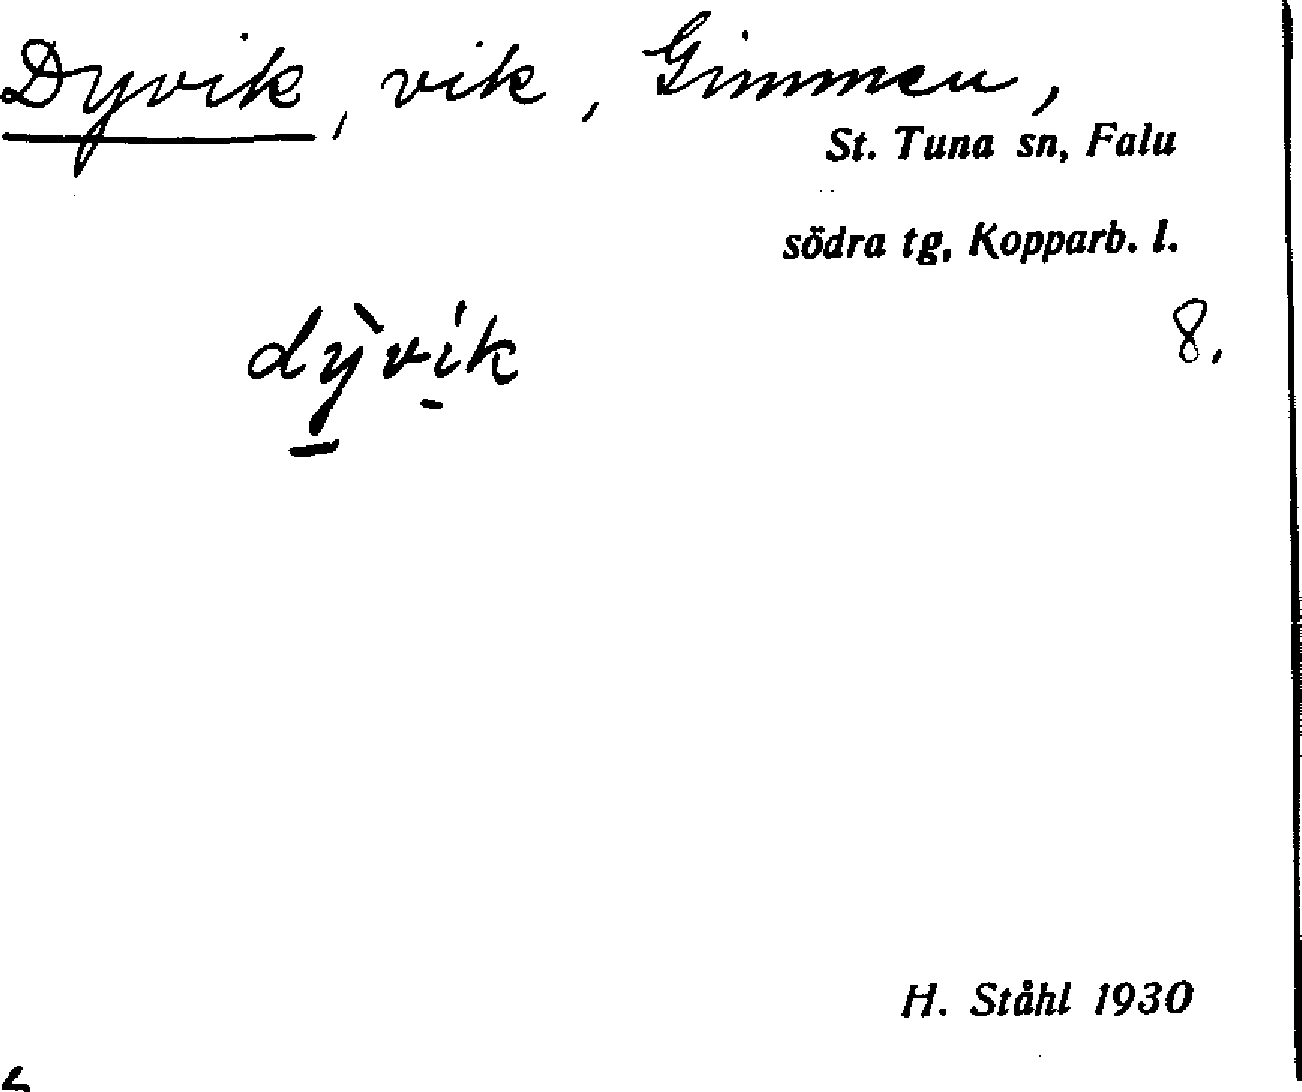 Dyvik, vik, Gimmen,
St. Tuna sn, Falu
södra tg, Kopparb. l.
8.
dỳvík
H. Ståhl 1930